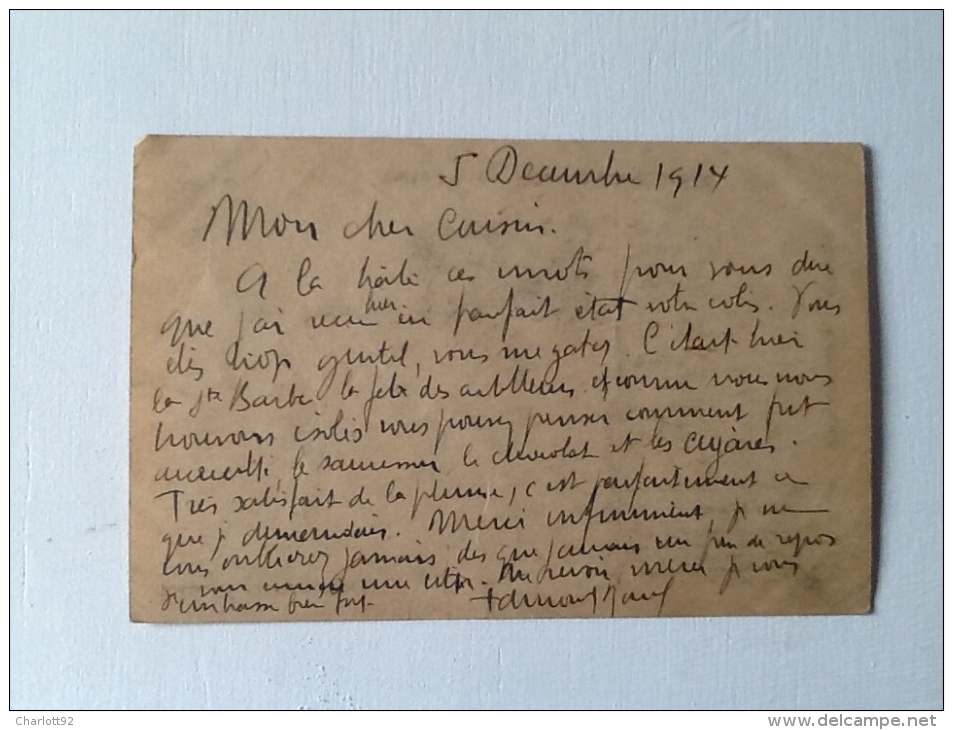 5 Decembre 1914
Mon cher Cousin.
A la hâte ces mots pour vous dire
que j'ai recu hier en parfait état votre colis. Vous
êtes trop gentil, vous me gatez. C'était hier
la Ste Barbe la fete des artilleurs et comme nous nous
trouvons isolés vous pouvez penser comment fut
accueilli le saucisson, le chocolat et les cigares.
Très satisfait de la plume, c'est parfaitement ce
que je demandais. Merci infiniment, je ne
vous oublierez jamais des que j'aurais un peu de repos
vous une . Au revoir, merci je vous
embrasse bien fort. Edmond
Charlott92
www.delcampe.net